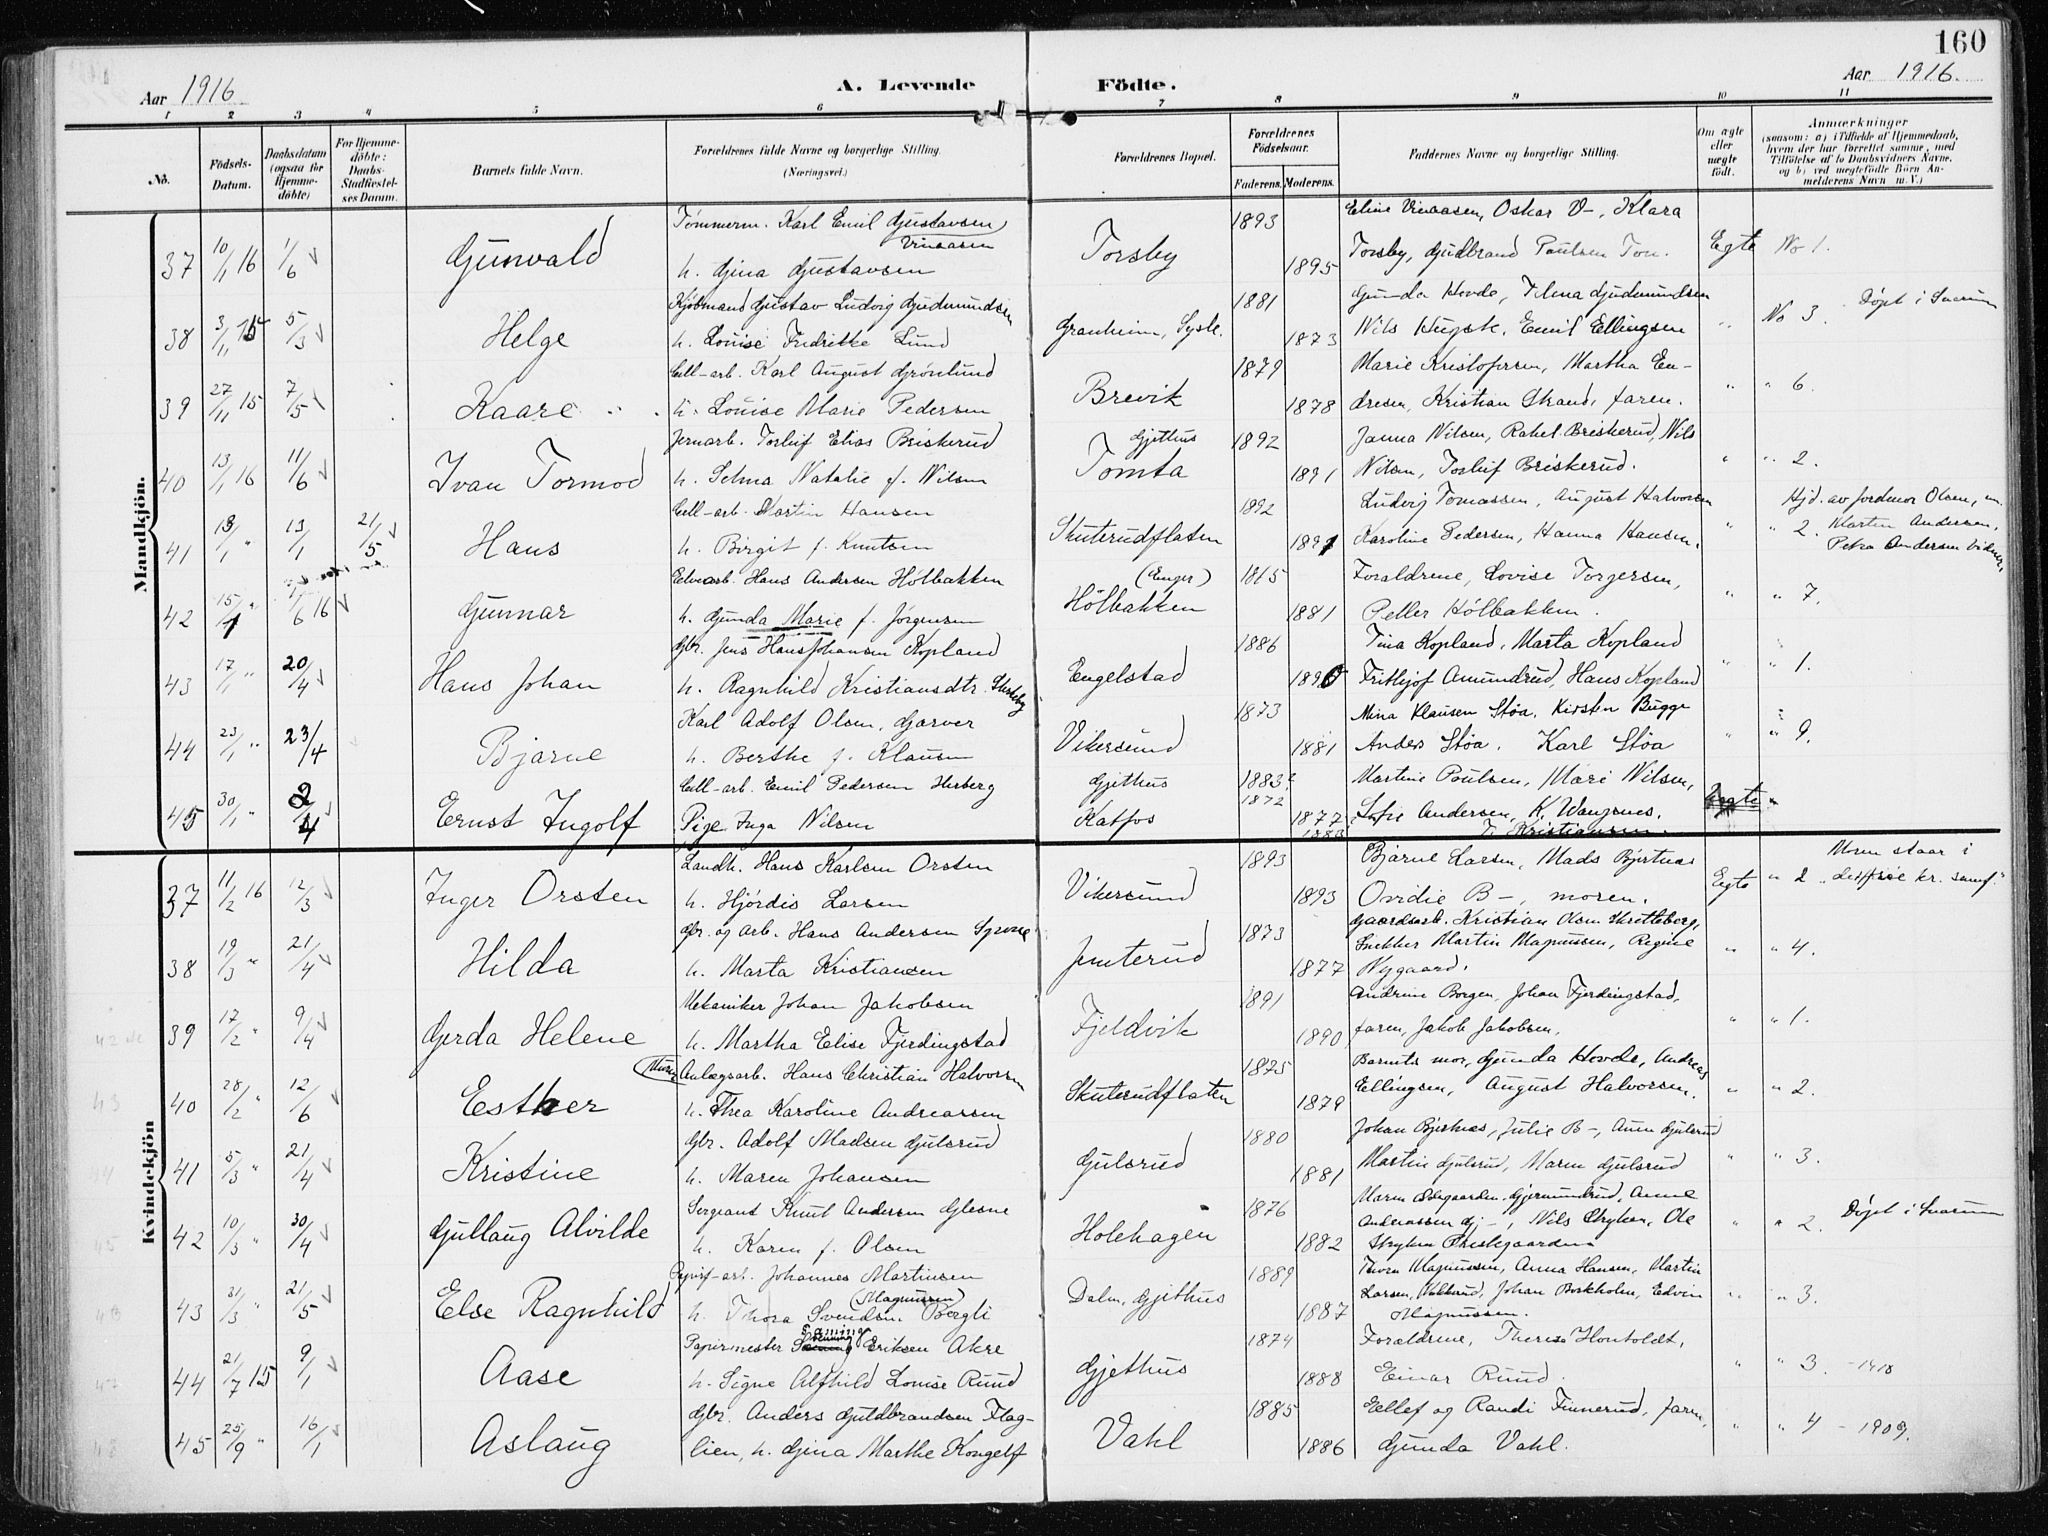 160
Aar 1916 A. Levende Födte. Aar 1916.
1 2 3 4 5 6 7 8 9 10 11
No. Födsels-Datum. Daabsdatum (ogsaa for Hjemmedöbte) For Hjemmedöbte: Daabs-Stadfæstelses Datum. Barnets fulde Navn. Forældrenes fulde Navne og borgerlige Stilling. (Næringsvei.) Forældrenes Bopæl. Forældrenes Födselsaar. Faderens. Moderens. Faddernes Navne og borgerlige Stilling. Om ægte eller uægte födt. Anmærkninger (saasom: a) i Tilfælde af Hjemmedaab, hvem der har forrettet samme, med Tilföielse af to Daabsvidners Navne, og b) ved uegtefödte Börn Anmelderens Navn m. V.)
Mandkjön.
Tømmerm. Karl Emil Gustavsen 1893 Eline Vinaasen, Oskar V-, Klara
Vinaasen
37 10/1 16 1/6 Gunvald h. Gina Gustavsen Torsby 1895 Torsby, Gudbrand Poulsen Egte No 1.
Kjøbmand Gustav Ludvig Gudmundsen 1881 Gunda Hovde, Gudmundsen
38 3/11 15 5/3 Helge h. Louise Fredrikke Lund Granheim, Sysle. 1873 Nils Emil Ellingsen " No 3. Døpt i Snarum
Cell-arb. Karl August Grönlund 1879 Marie Kristofersen, Martha En-
39 27/11 15 7/5 Kaare h. Louise Marie Pedersen Brevik 1878 dresen, Kristian Strand, faren. " " 6.
Jernarb. Torleif Elias Briskerud Gjethus 1892 Janna Nilsen, Rakel Briskerud, Nils
40 13/1 16 11/6 Ivan Tormod h. Selma Natalie f. Nilsen Tomta 1891 Nilsen, Torleif Briskerud. " " 2.
Cell-arb. Martin Hansen 1892 Ludvig Tomassen, August Halvorsen Hjd. av jordmor Olsen,
41 13/1 " 13/1 21/5 Hans h. Birgit f. Knutsen Skuterudflaten 1891 Karoline Pedersen, Hanna Hansen. " " 2. Marten Andersen,
Petra Andersen vidner.
Elvearb. Hans Andersen Hölbakken (Enger) 1815 Foraldrene, Lovise Torgersen,
42 15/1 " 1/6 16 Gunnar h. Gunda Marie f. Jörgensen Hölbakken 1881 Petter Hölbakken. " " 7.
Gbr. Jens Hans Johansen Kopland 1886 Tina Kopland, Marta Kopland
43 17/1 " 20/4 Hans Johan h. Ragnhild Kristiansdtr. Engelstad 1890 Frithjof Amundrud, Hans Kopland " " 1.
Karl Adolf Olsen, Garver 1873 Mina Klausen Støa, Kirsten Bugge
44 23/1 " 23/4 Bjarne h. Berthe f. Klausen Vikersund 1881 Anders Støa. Karl Støa " " 9.
Cell-arb. Emil Pedersen Herberg Gjethus 1883? Martine Poulsen, Mari Nilsen,
1872
45 30/1 " 2/4 Ernst Ingolf Pige Inga Nilsen Katfos 1877? Sofie Andersen, K. Wangsnes.
1883 T. Kristiansen.
Kvindekjön
Landh. Hans Karlsen Orsten 1893 Bjarne Larsen, Mads Bjertnæs Moren staar i
37 11/2 16 12/3 Inger Orsten h. Hjördis Larsen Vikersund 1893 Ovidie B-, moren. Egte " 2 "Det frie kr. samf."
Gbr. og Arb. Hans Andersen 1873 Gaardsarb. Kristian Olsen
38 19/3 " 21/4 Hilda h. Marta Kristiansen Jenterud 1877 Snekker Martin Magnussen, Regine " " 4.
Nygaard.
Mekaniker Johan Jakobsen 1891 Andrine Borgen, Johan Fjerdingstad,
39 17/2 " 9/4 Gerda Helene h. Martha Elise Fjerdingstad Fjeldvik 1890 faren, Jakob Jakobsen. " " 1.
Anlægsarb. Hans Christian Halvorsen 1875 Barnets mor, Gunda Hovde, Andreas
40 28/2 " 12/6 Esther h. Thea Karoline Andreassen Skuterudflaten 1879 Ellingsen, August Halvorsen. " " 2.
Gbr. Adolf Madsen Gulsrud 1880 Johan Bjerknæs, Julie B-, Anna Gulsrud
41 5/3 " 21/4 Kristine h. Maren Johansen Gulsrud 1881 Martin Gulsrud, Maren Gulsrud " " 3.
Sergeant Knut Andersen Glesne 1876 Maren Gjermundrud, Anne
42 10/3 " 30/4 Gullaug Alvilde h. Karen f. Olsen Holehagen 1882 Andreassen Gj-, Nils Stryken, Ole " " 2. Døpt i Snarum
Stryken
Papirf-arb. Johannes Martinsen 1889 Thora Magnussen, Anna Hansen, Martin
43 31/3 " 21/5 Else Ragnhild h. Thora Svendsen (Magnussen) Bergli Dalm, Gjethus 1887 Larsen, Johan Borkholm, Edvin " " 3.
Magnussen.
Papirmester Eriksen Akre 1874 Forældrene, Therese Hontoldt,
44 21/7 15 9/1 Aase h. Signe Alfhild Louise Ruud Gjethus 1888 Einar Ruud. " " 3. -1910
Gbr. Anders Guldbrandsen Flag- 1885 Eilef og Randi Finnerud, faren,
45 25/9 " 16/1 Aslaug lien, h. Gina Marthe Kongelf Vahl 1886 Gunda Vahl. " " 4 - 1909.